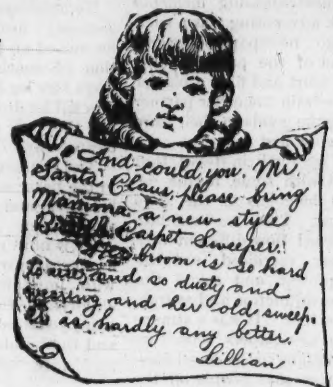 And could you, Mr.
Santa Claus, please bring
Mamma a new style
Carpet Sweeper.
broom is so hard
to use, and so dusty and
wearing and her old sweep-
is hardly any better.
Lillian